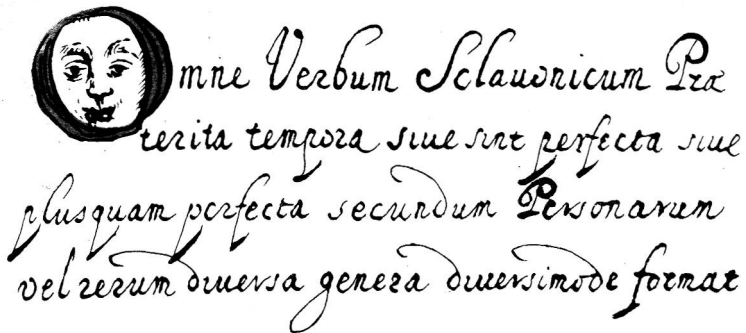 Omne Verbum Sclauonicum Præ
terita tempora siue sint perfecta siue
plusquam perfecta secundum Personarum
vel rerum diuersa genera diuersimode format